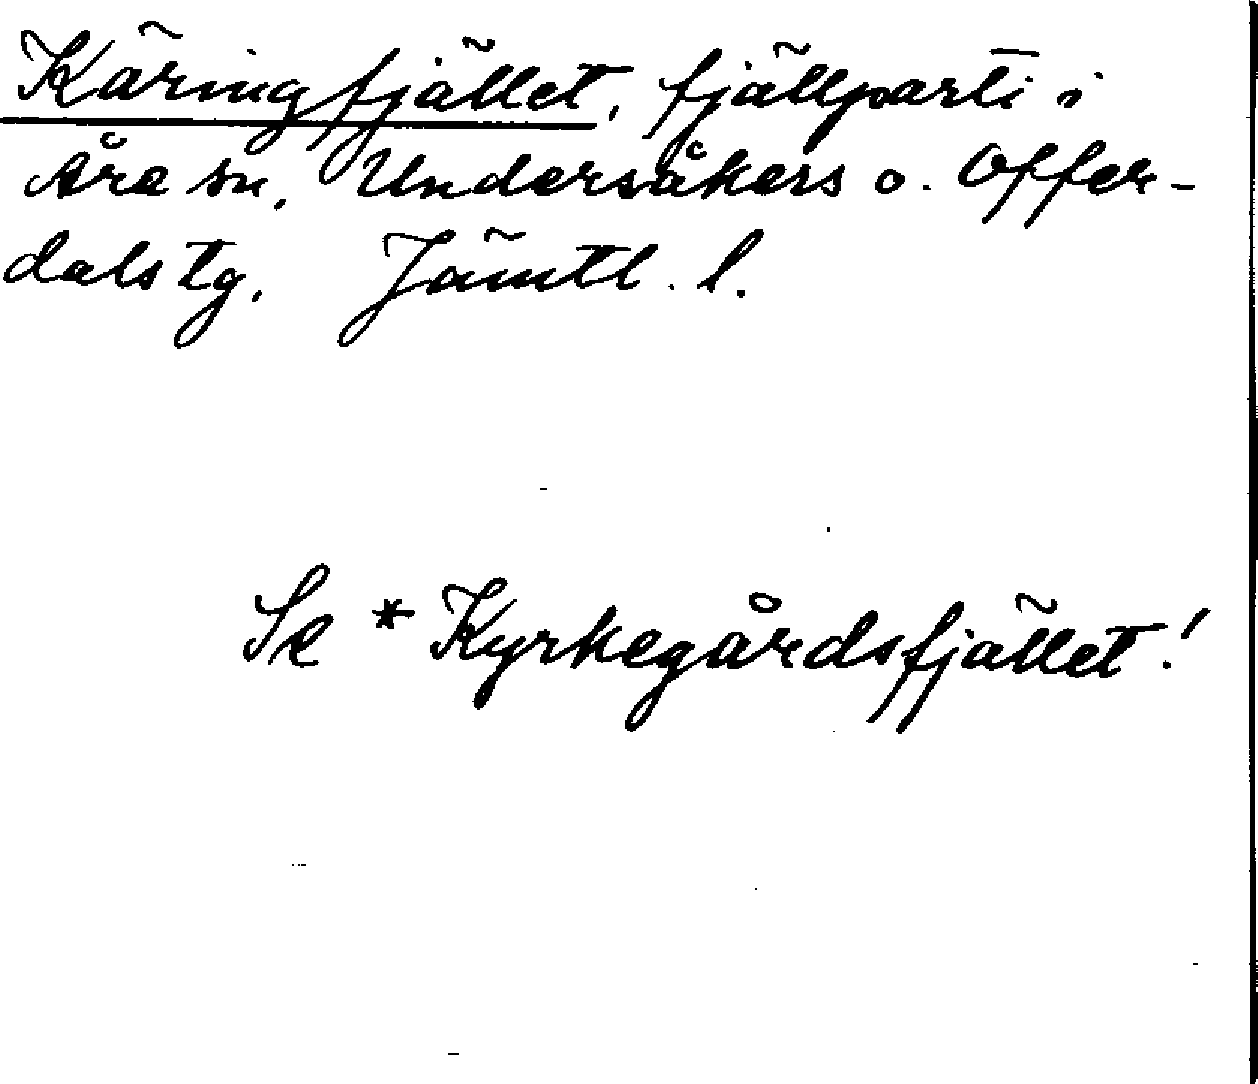 Käringfjället, fjällparti i
Åre sn, Undersåkers o. Offer-
dals tg, Jämtl. l.
Se *Kyrkegårdsfjället!